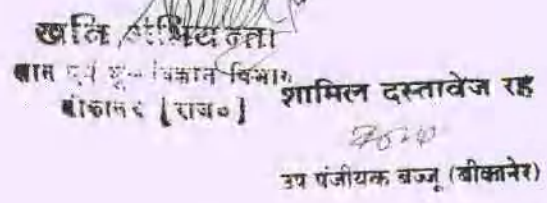 खनि अभियन्ता
खान एवं भू-विज्ञान विभाग
बीकानेर [राज०]
शामिल दस्तावेज रहे
उप पंजीयक बज्जू (बीकानेर)